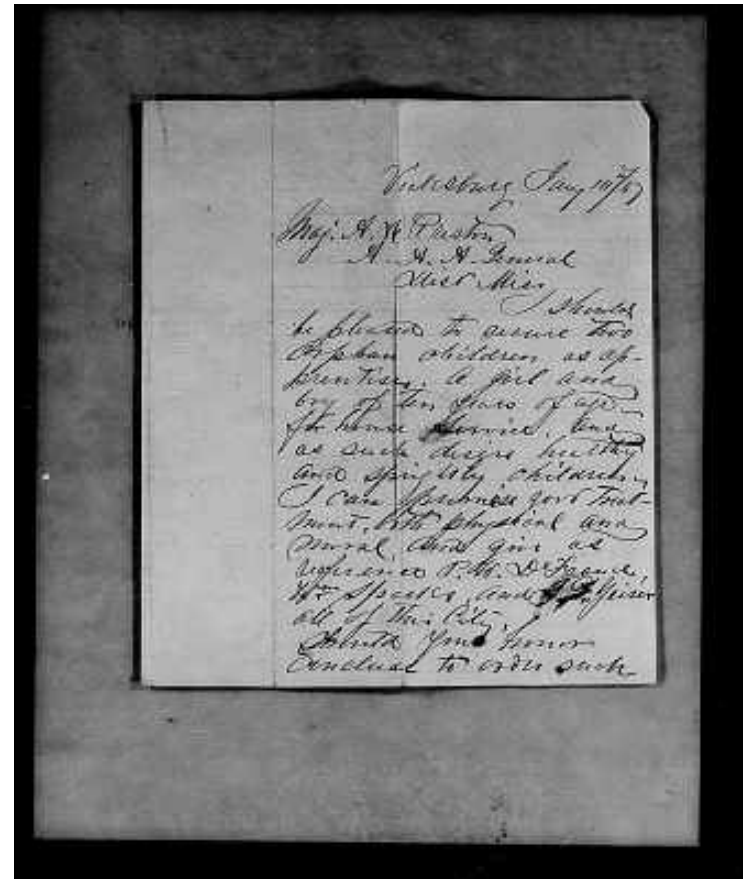 Vicksburg Jany 10th/67
Maj. A. W. Preston
A. A. A. General
Dist. Miss
I should
be pleased to secure two
Orphan children, as ap-
prentises, a girl and
boy of ten years of age
for house service, and
as such desire healthy
and sprightly children,
I can promise good treat-
ment, both physical and
moral, and give as
reference T. M. DeFrance,
Wm Sparks, and Geiser
all of this City,
Should Your honor
conclude to order such